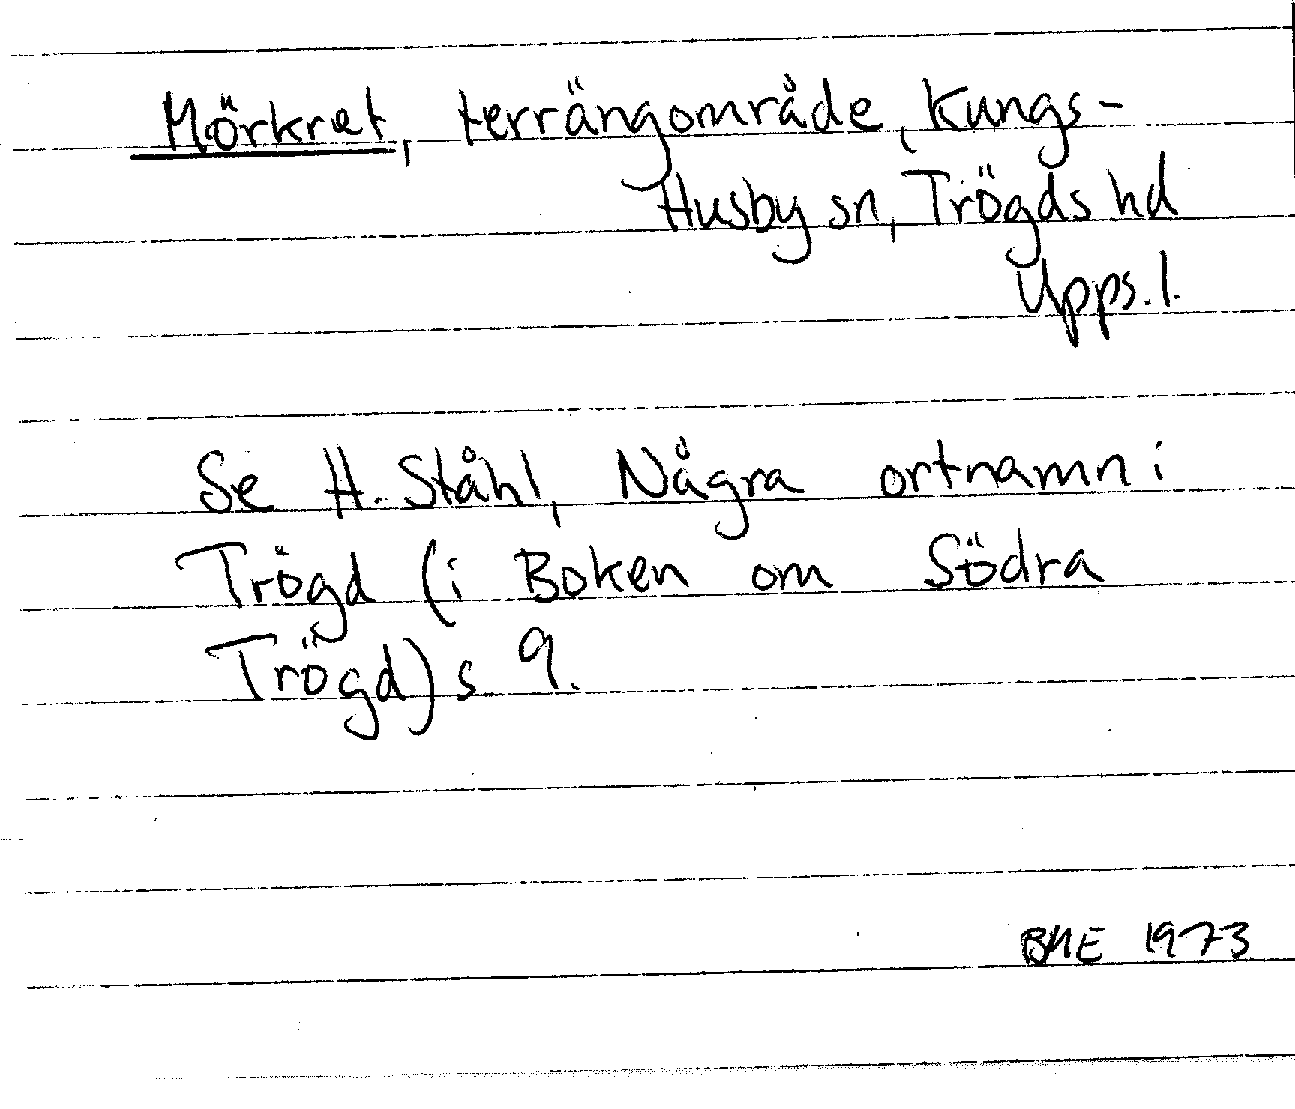 Mörkret, terrängområde, Kungs-
Husby sn, Trögds hd
Upps. l.
Se H. Ståhl, Några ortnamn i
Trögd (i Boken om Södra
Trögd) s. 9.
BME 1973